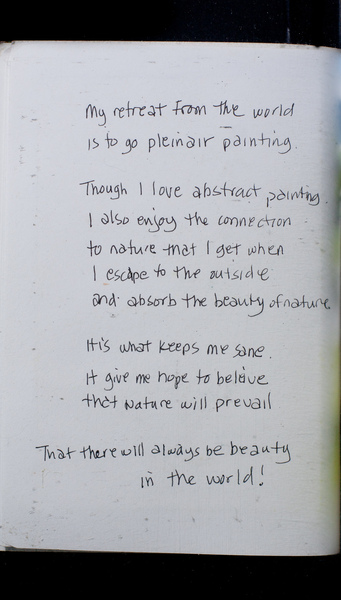 My retreat from the world
is to go pleinair painting.
Though I love abstract painting
I also enjoy the connection
to nature that I get when
I escape to the outside
and absorb the beauty of nature.
It's what keeps me sane.
It give me hope to beleive
that Nature will prevail
That there will always be beauty
in the world!